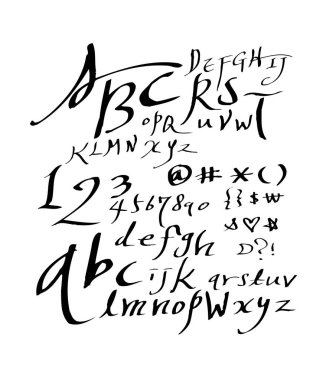 A DEFGHIJ
BCRST
OPQ UVW
KLMN XYZ
123 @#*()
4567890 {}$₩
defgh D?!
abc ijk qrstuv
lmnopwxyz